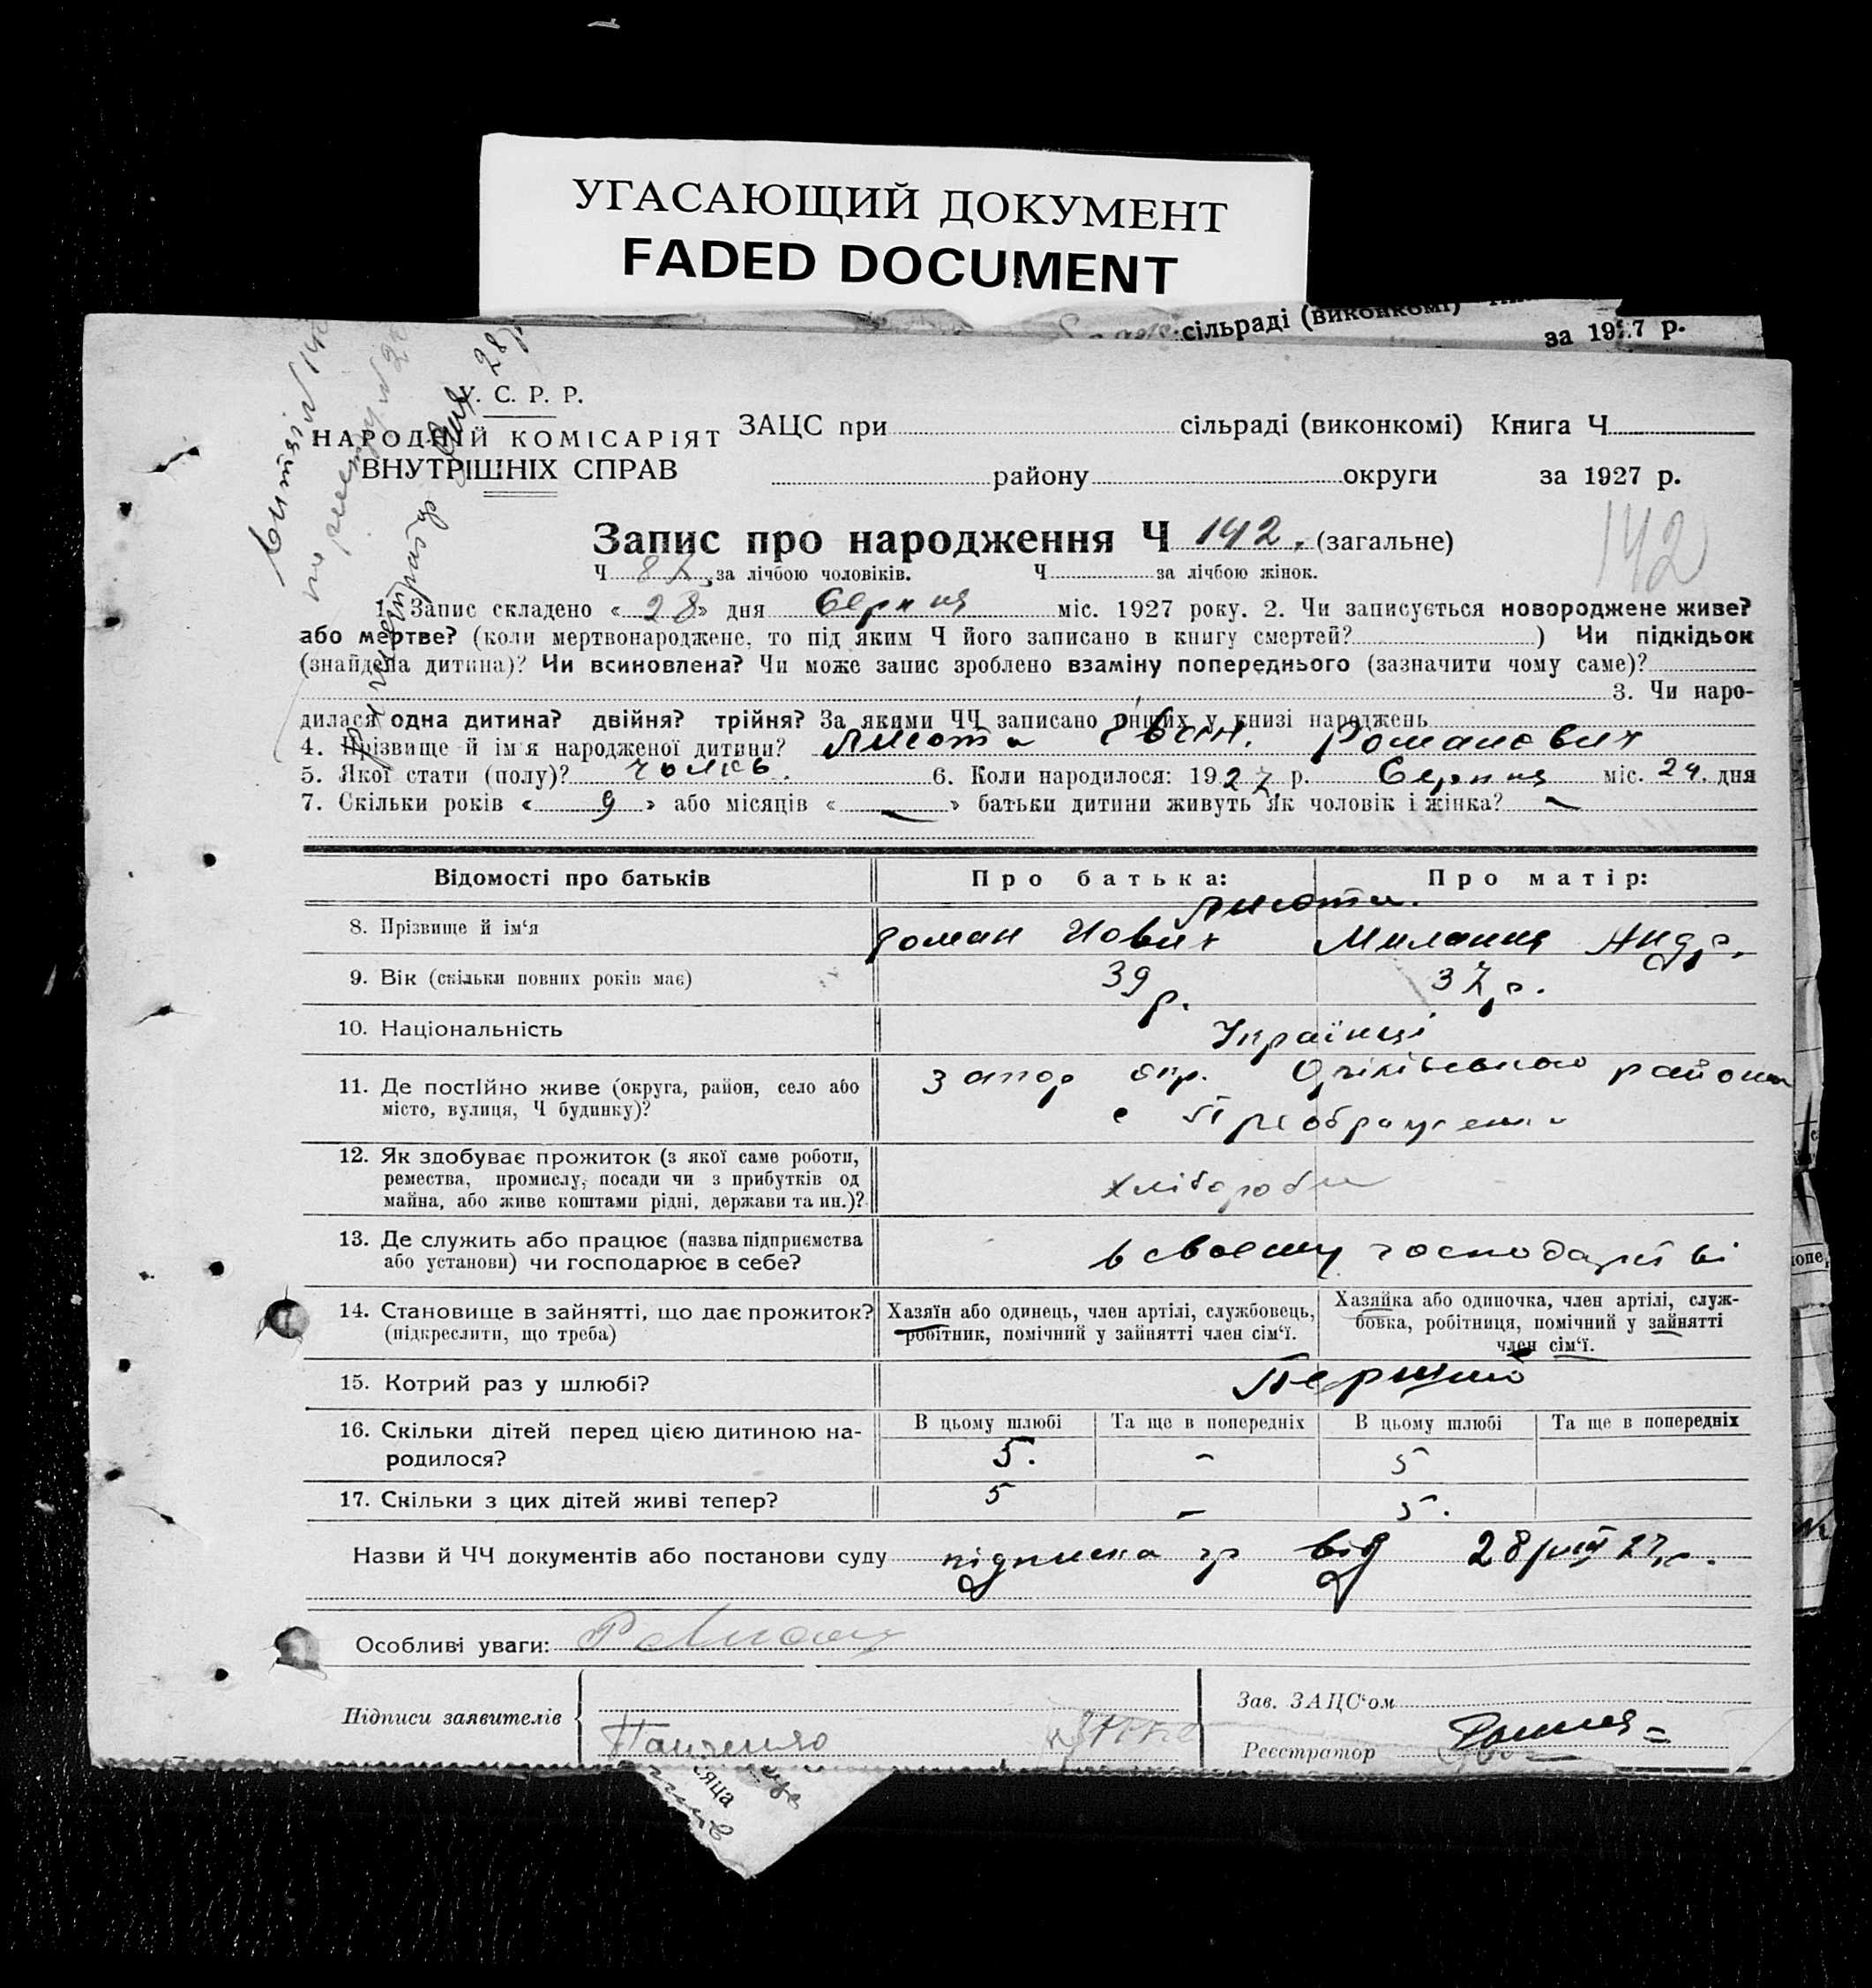 УГАСАЮЩИЙ ДОКУМЕНТ
FADED DOCUMENT
сільраді (виконкомі)
за 1927 р.
У. С. Р. Р.
НАРОДНІЙ КОМІСАРІЯТ
ВНУТРІШНІХ СПРАВ
ЗАЦС при сільраді (виконкомі) Книга Ч
району округи за 1927 р.
Запис про народження Ч 142. (загальне)
142
Ч 87 за лічбою чоловіків. Ч за лічбою жінок.
1. Запис складено «28» дня Серпня міс. 1927 року. 2. Чи записується новороджене живе?
або мертве? (коли мертвонароджене, то під яким Ч його записано в книгу смертей? ) Чи підкідьок
(знайдена дитина)? Чи всиновлена? Чи може запис зроблено взаміну попереднього (зазначити чому саме)?
3. Чи наро-
дилася одна дитина? двійня? трійня? За якими ЧЧ записано інших у книзі народжень
4. Прізвище й ім'я народженої дитини? Лисота Іван. Романович
5. Якої стати (полу)? чолов. 6. Коли народилося: 1927 р. Серпня міс. 24. дня
7. Скільки років « 9 » або місяців « — » батьки дитини живуть як чоловік і жінка? —
Відомості про батьків Про батька: Про матір:
8. Прізвище й ім'я Лисота.
Роман Йович Миланія Андр.
9. Вік (скільки повних років має) 39 р. 37 р.
10. Національність Українці
11. Де постійно живе (округа, район, село або місто, вулиця, Ч будинку)? Запор окр. Оріхівського району
с Преображенки
12. Як здобуває прожиток (з якої саме роботи,
ремества, промислу, посади чи з прибутків од
майна, або живе коштами рідні, держави та ин.)? хлібороби
13. Де служить або працює (назва підприємства
або установи) чи господарює в себе? в своєму господарстві
14. Становище в зайнятті, що дає прожиток?
(підкреслити, що треба)
Хазяїн або одинець, член артілі, службовець,
робітник, помічний у зайнятті член сім'ї.
Хазяйка або одиночка, член артілі, служ-
бовка, робітниця, помічний у зайнятті
член сім'ї.
15. Котрий раз у шлюбі? Перший
В цьому шлюбі Та ще в попередніх В цьому шлюбі Та ще в попередніх
16. Скільки дітей перед цією дитиною на-
родилося? 5. - 5
17. Скільки з цих дітей живі тепер? 5 - 5.
Назви й ЧЧ документів або постанови суду підписка гр від 28/VIII 27 р.
Особливі уваги:
Підписи заявителів
Зав. ЗАЦС'ом
Реєстратор